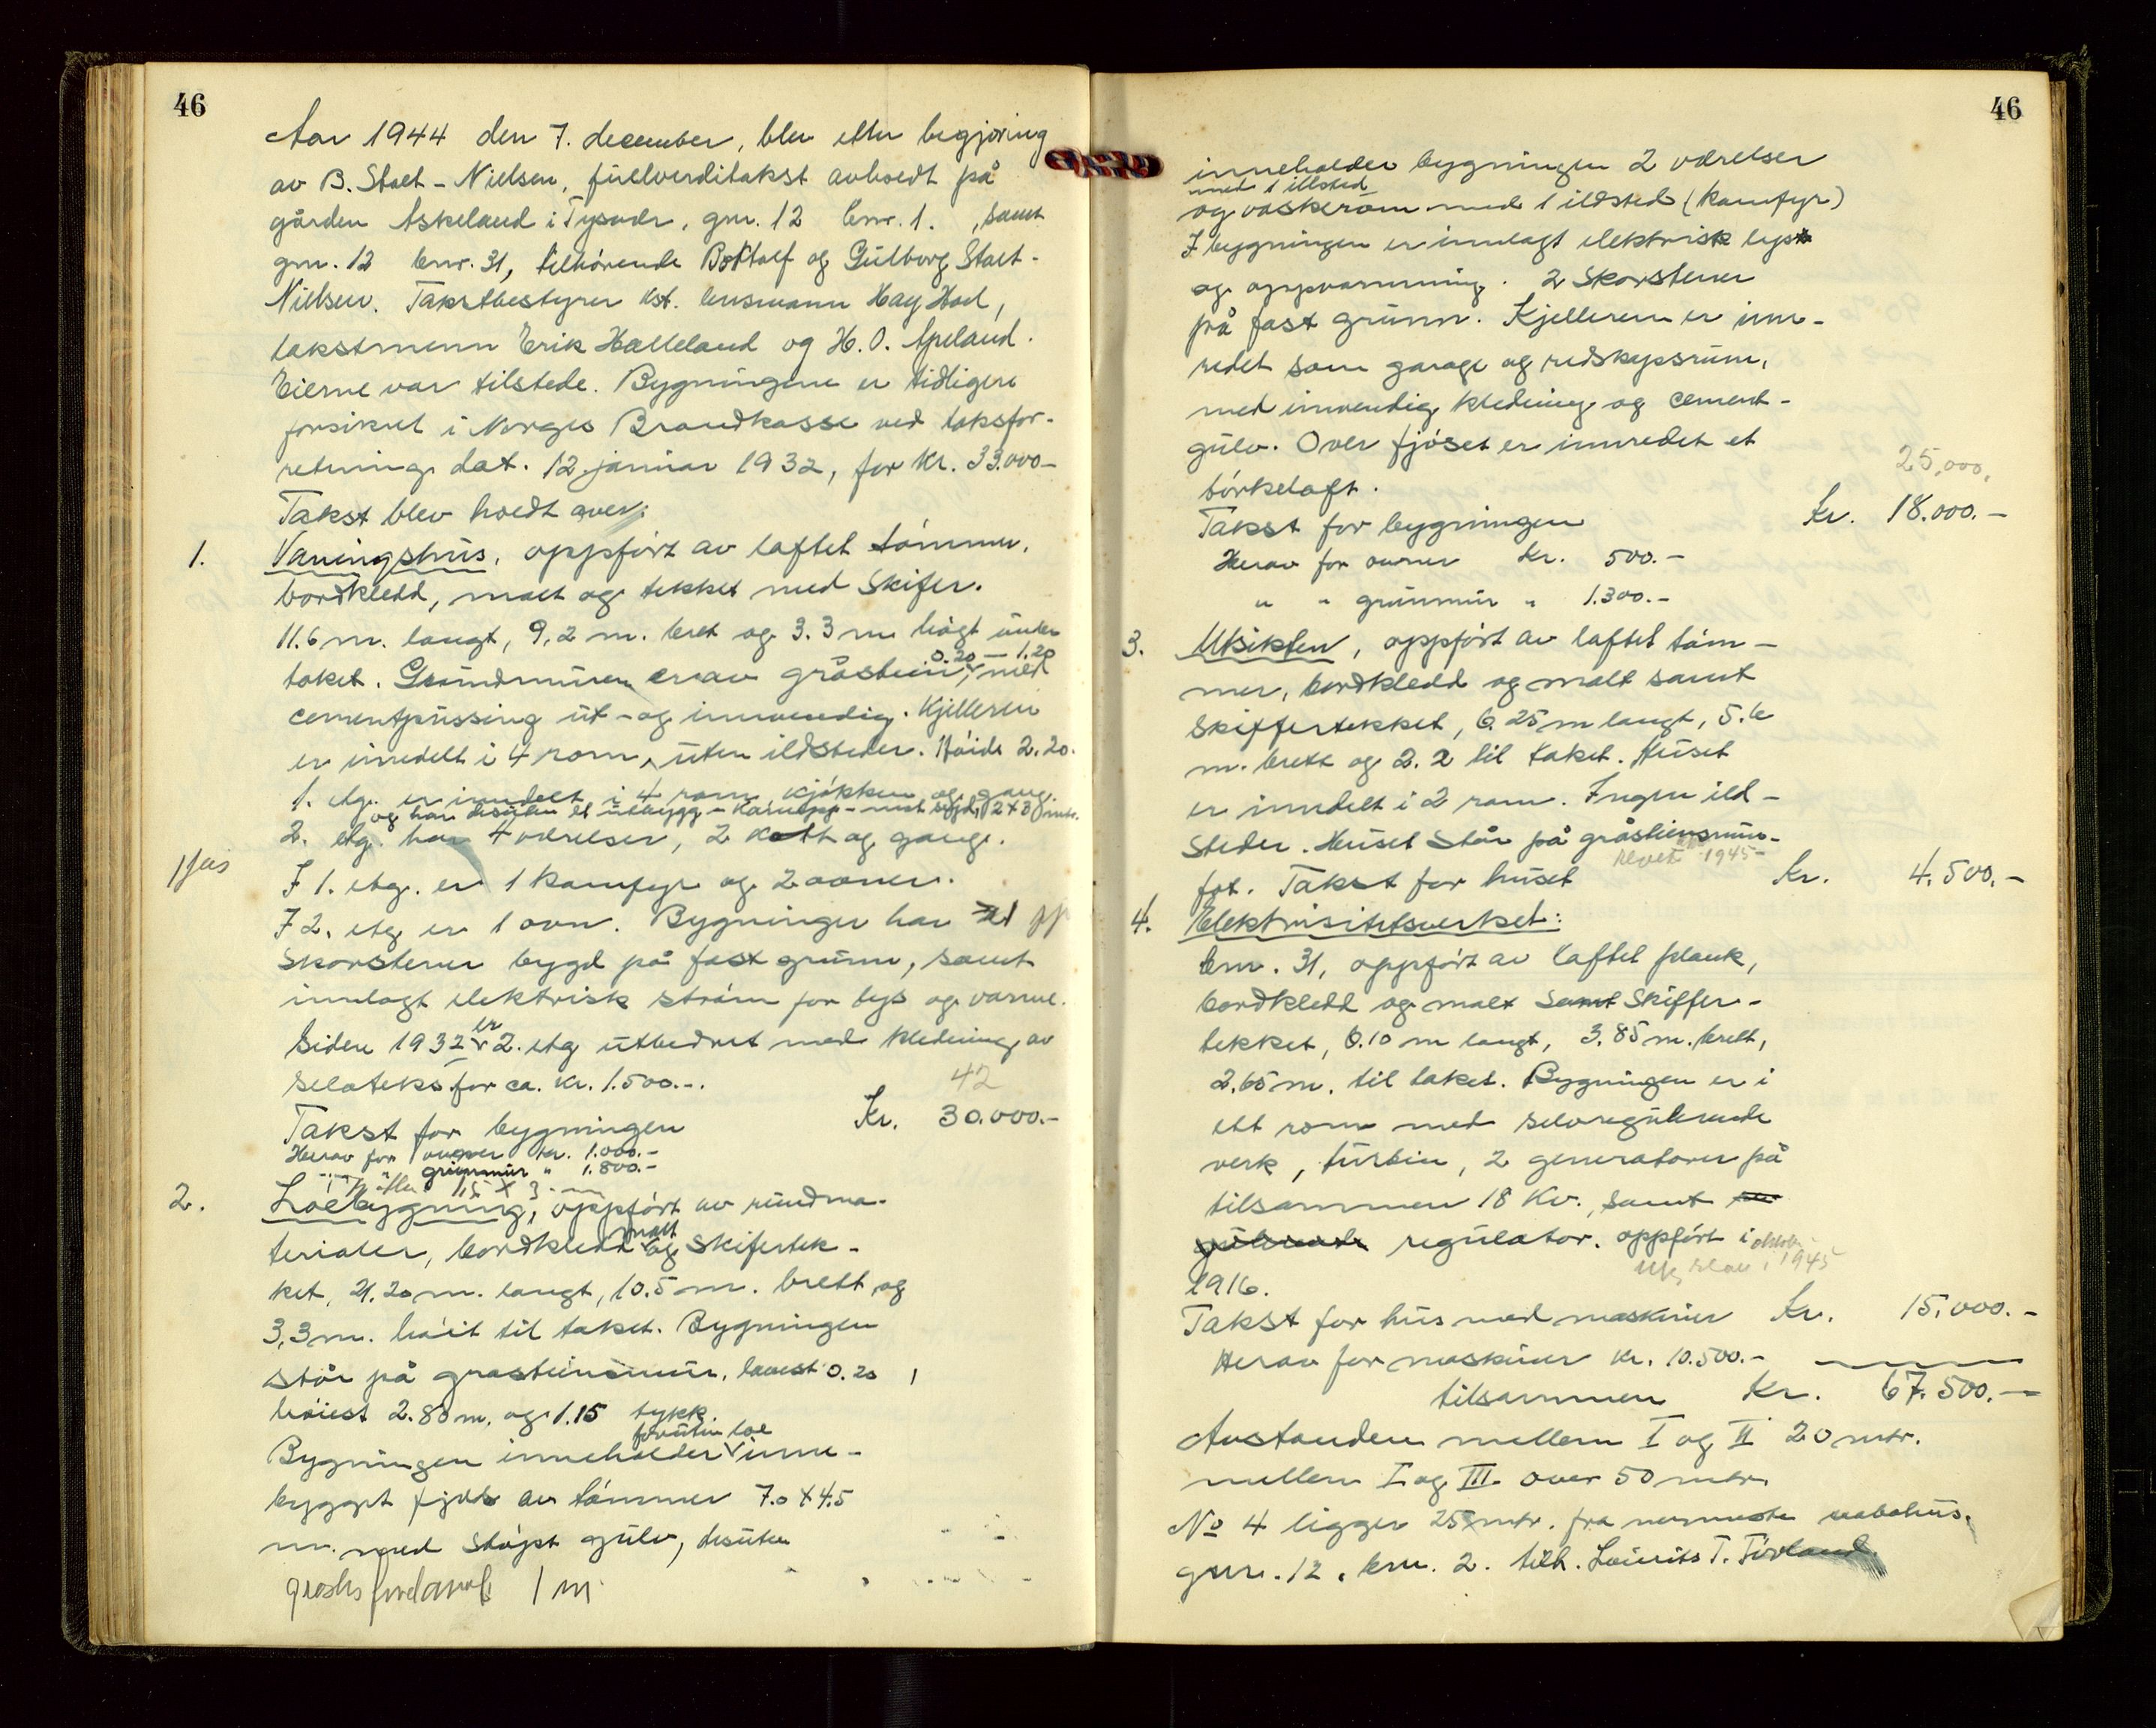 46
Aar 1944 den 7. december, blev etter begjæring
av B. Stolt-Nielsen, fullverditakst avholdt på
gården Askeland i Tysvær, gnr. 12 bnr. 1. , samt
gnr. 12 bnr. 31, tilhørende Botolf og Gulborg Stolt-
Nielsen. Takstbestyrer kst. lensmann Hay Hod,
takstmenn Erik Halleland og H. O. Apeland.
Eierne var tilstede. Bygningene er tidligere
forsikret i Norges Brandkasse ved taksfor-
retning dat. 12. januar 1932, for Kr. 33.000-
Takst blev holdt over:
1. Vaningshus, oppført av laftet tømmer,
bordkledd, malt og tekket med Skifer.
11.6 m. langt, 9,2 m. bret og 3.3 m. høgt under
0.20 - 1.20
taket. Grundmuren er av gråstein, med
cementpussing ut- og innvendig. Kjelleren
er inndelt i 4 rom, uten ildsteder. Høide 2.20.
1. etg. er inndelt i 4 rom kjøkken og gang
og har desuten et utbygg - Karnapp - mot syd, 2 x 3 mtr.
2. etg. har 4 værelser, 2 kott og gang.
I 1. etg. er 1 Kamfyr og 2 ovner.
I 2. etg er 1 ovn. Bygningen har 1
Skorstener bygd på fast grunn, samt
innlagt elektrisk strøm for lys og varme.
er
Siden 1932 2. etg utbedret med kledning av
selateks for ca. kr. 1.500.-.
42
Takst for bygningen Kr. 30.000.-
Herav for ovner kr. 1.000.-
grunmur " 1.800.-
2. Løebygning, oppført av rundma-
malt
terialer, bordkledd og Skifertek-
ket, 21.20 m. langt, 10.5 m. brett og
3,3 m. høit til taket. Bygningen
står på grasteinsmur, lavest 0.20
høiest 2.80 m. og 1.15 tykk.
foruten loe
Bygningen inneholder inne-
bygget fjøs av tømmer 7.0 x 4.5
m. med Støpt gulv, desuten
1 m
46
inneholder bygningen 2 værelser
med 1 illsted
og vaskerom med 1 ildsted (Kamfyr)
I bygningen er innlagt elektrisk lys
og oppvarmning. 2 Skorstener
på fast grunn. Kjelleren er inn-
redet som garage og redskapsrum,
med innvendig kledning og cement-
gulv. Over fjøset er innredet et
tørkeloft.
25,000,
Takst for bygningen Kr. 18.000.-
Herav for ovner Kr. 500.-
" " grunnmur " 1.300.-
3. Utsikten, oppført av laftet tøm-
mer, bordkledd og malt samt
Skiffertekket, 6.25 m langt, 5.6
m. brett og 2.2 til taket. Huset
er inndelt i 2 rom. Ingen ild-
steder. Huset Står på gråsteinsmur-
1945-
fot. Takst for huset Kr. 4.500.-
4. Elektrisitetsverket:
bnr. 31, oppført av laftet plank,
bordkledd og malt samt Skiffer-
tekket, 6.10 m langt, 3.85 m. brett,
2.65 m. til taket. Bygningen er i
ett rom med selvregulerende
verk, turbin, 2 generatorer på
tilsammen 18 Kv., samt
regulator. oppført i
1945
1916.
Takst for hus med maskiner Kr. 15.000.-
Herav for maskiner kr. 10.500.-
tilsammen Kr. 67.500.-
Avstanden mellem I og II 20 mtr.
mellem I og III over 50 mtr.
No 4 ligger 25 mtr. fra nermeste nabohus,
gnr. 12, bnr. 2. tilh. Laurits T. Førland